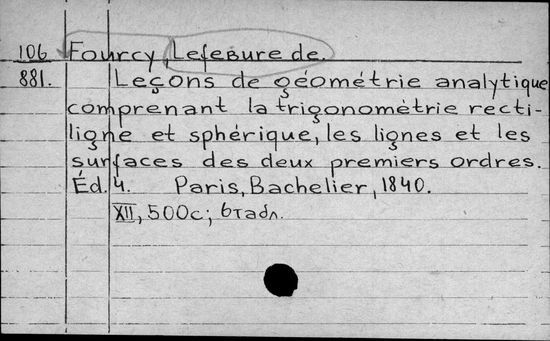 106 Fourcy, Lefebure de.
881. Leçons de géométrie analytique
comprenant la trigonométrie recti-
ligne et sphérique, les lignes et les
surfaces des deux premiers ordres.
Éd. 4. Paris, Bachelier, 1840.
XII, 500с; 6 табл.